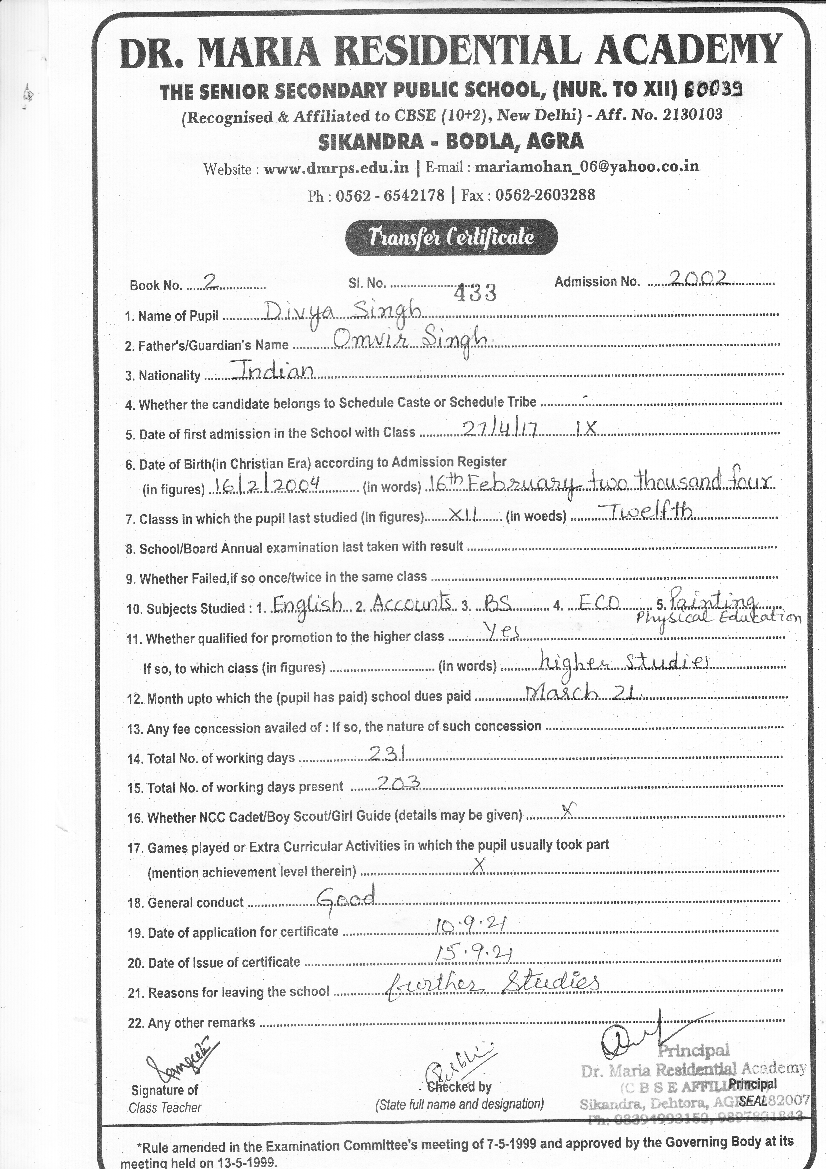 DR. MARIA RESIDENTIAL ACADEMY
THE SENIOR SECONDARY PUBLIC SCHOOL, (NUR. TO XII) 60039
(Recognised & Affiliated to CBSE (10+2), New Delhi) - Aff. No. 2130103
SIKANDRA - BODLA, AGRA
Website : www.dmrps.edu.in | E-mail : mariamohan_06@yahoo.co.in
Ph : 0562 - 6542178 | Fax : 0562-2603288
Transfer Certificate
Book No. 2 Sl. No. 433 Admission No. 2002
1. Name of Pupil Divya Singh
2. Father's/Guardian's Name Omvir Singh
3. Nationality Indian
4. Whether the candidate belongs to Schedule Caste or Schedule Tribe -
5. Date of first admission in the School with Class 27/4/17 IX
6. Date of Birth(in Christian Era) according to Admission Register
(in figures) 16/2/2004 (in words) 16th February two thousand four
7. Classs in which the pupil last studied (in figures) XII (in woeds) Twelfth
8. School/Board Annual examination last taken with result
9. Whether Failed,if so once/twice in the same class
10. Subjects Studied : 1. English 2. Accounts 3. BS 4. ECO 5. Painting
Physical Education
11. Whether qualified for promotion to the higher class Yes
If so, to which class (in figures) (in words) higher studies
12. Month upto which the (pupil has paid) school dues paid March 21
13. Any fee concession availed of : If so, the nature of such concession
14. Total No. of working days 231
15. Total No. of working days present 203
16. Whether NCC Cadet/Boy Scout/Girl Guide (details may be given) X
17. Games played or Extra Curricular Activities in which the pupil usually took part
(mention achievement level therein) X
18. General conduct Good
19. Date of application for certificate 10.9.21
20. Date of Issue of certificate 15.9.21
21. Reasons for leaving the school further Studies
22. Any other remarks
Principal
Dr. Maria Residential Academy
(C B S E AFFILI Principal
Sikandra, Dehtora, AG SEAL 82007
Signature of
Class Teacher
Checked by
(State full name and designation)
*Rule amended in the Examination Committee's meeting of 7-5-1999 and approved by the Governing Body at its
meeting held on 13-5-1999.